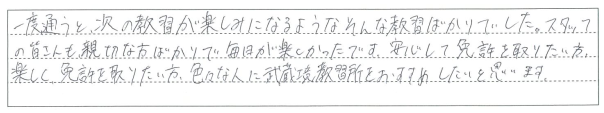 一度通うと、次の教習が楽しみになるようなそんな教習ばかりでした。スタッフ
の皆さんも、親切な方ばかりで毎日が楽しかったです。安心して免許を取りたい方、
楽しく免許を取りたい方、色々な人に武蔵境教習所をおすすめしたいと思います。